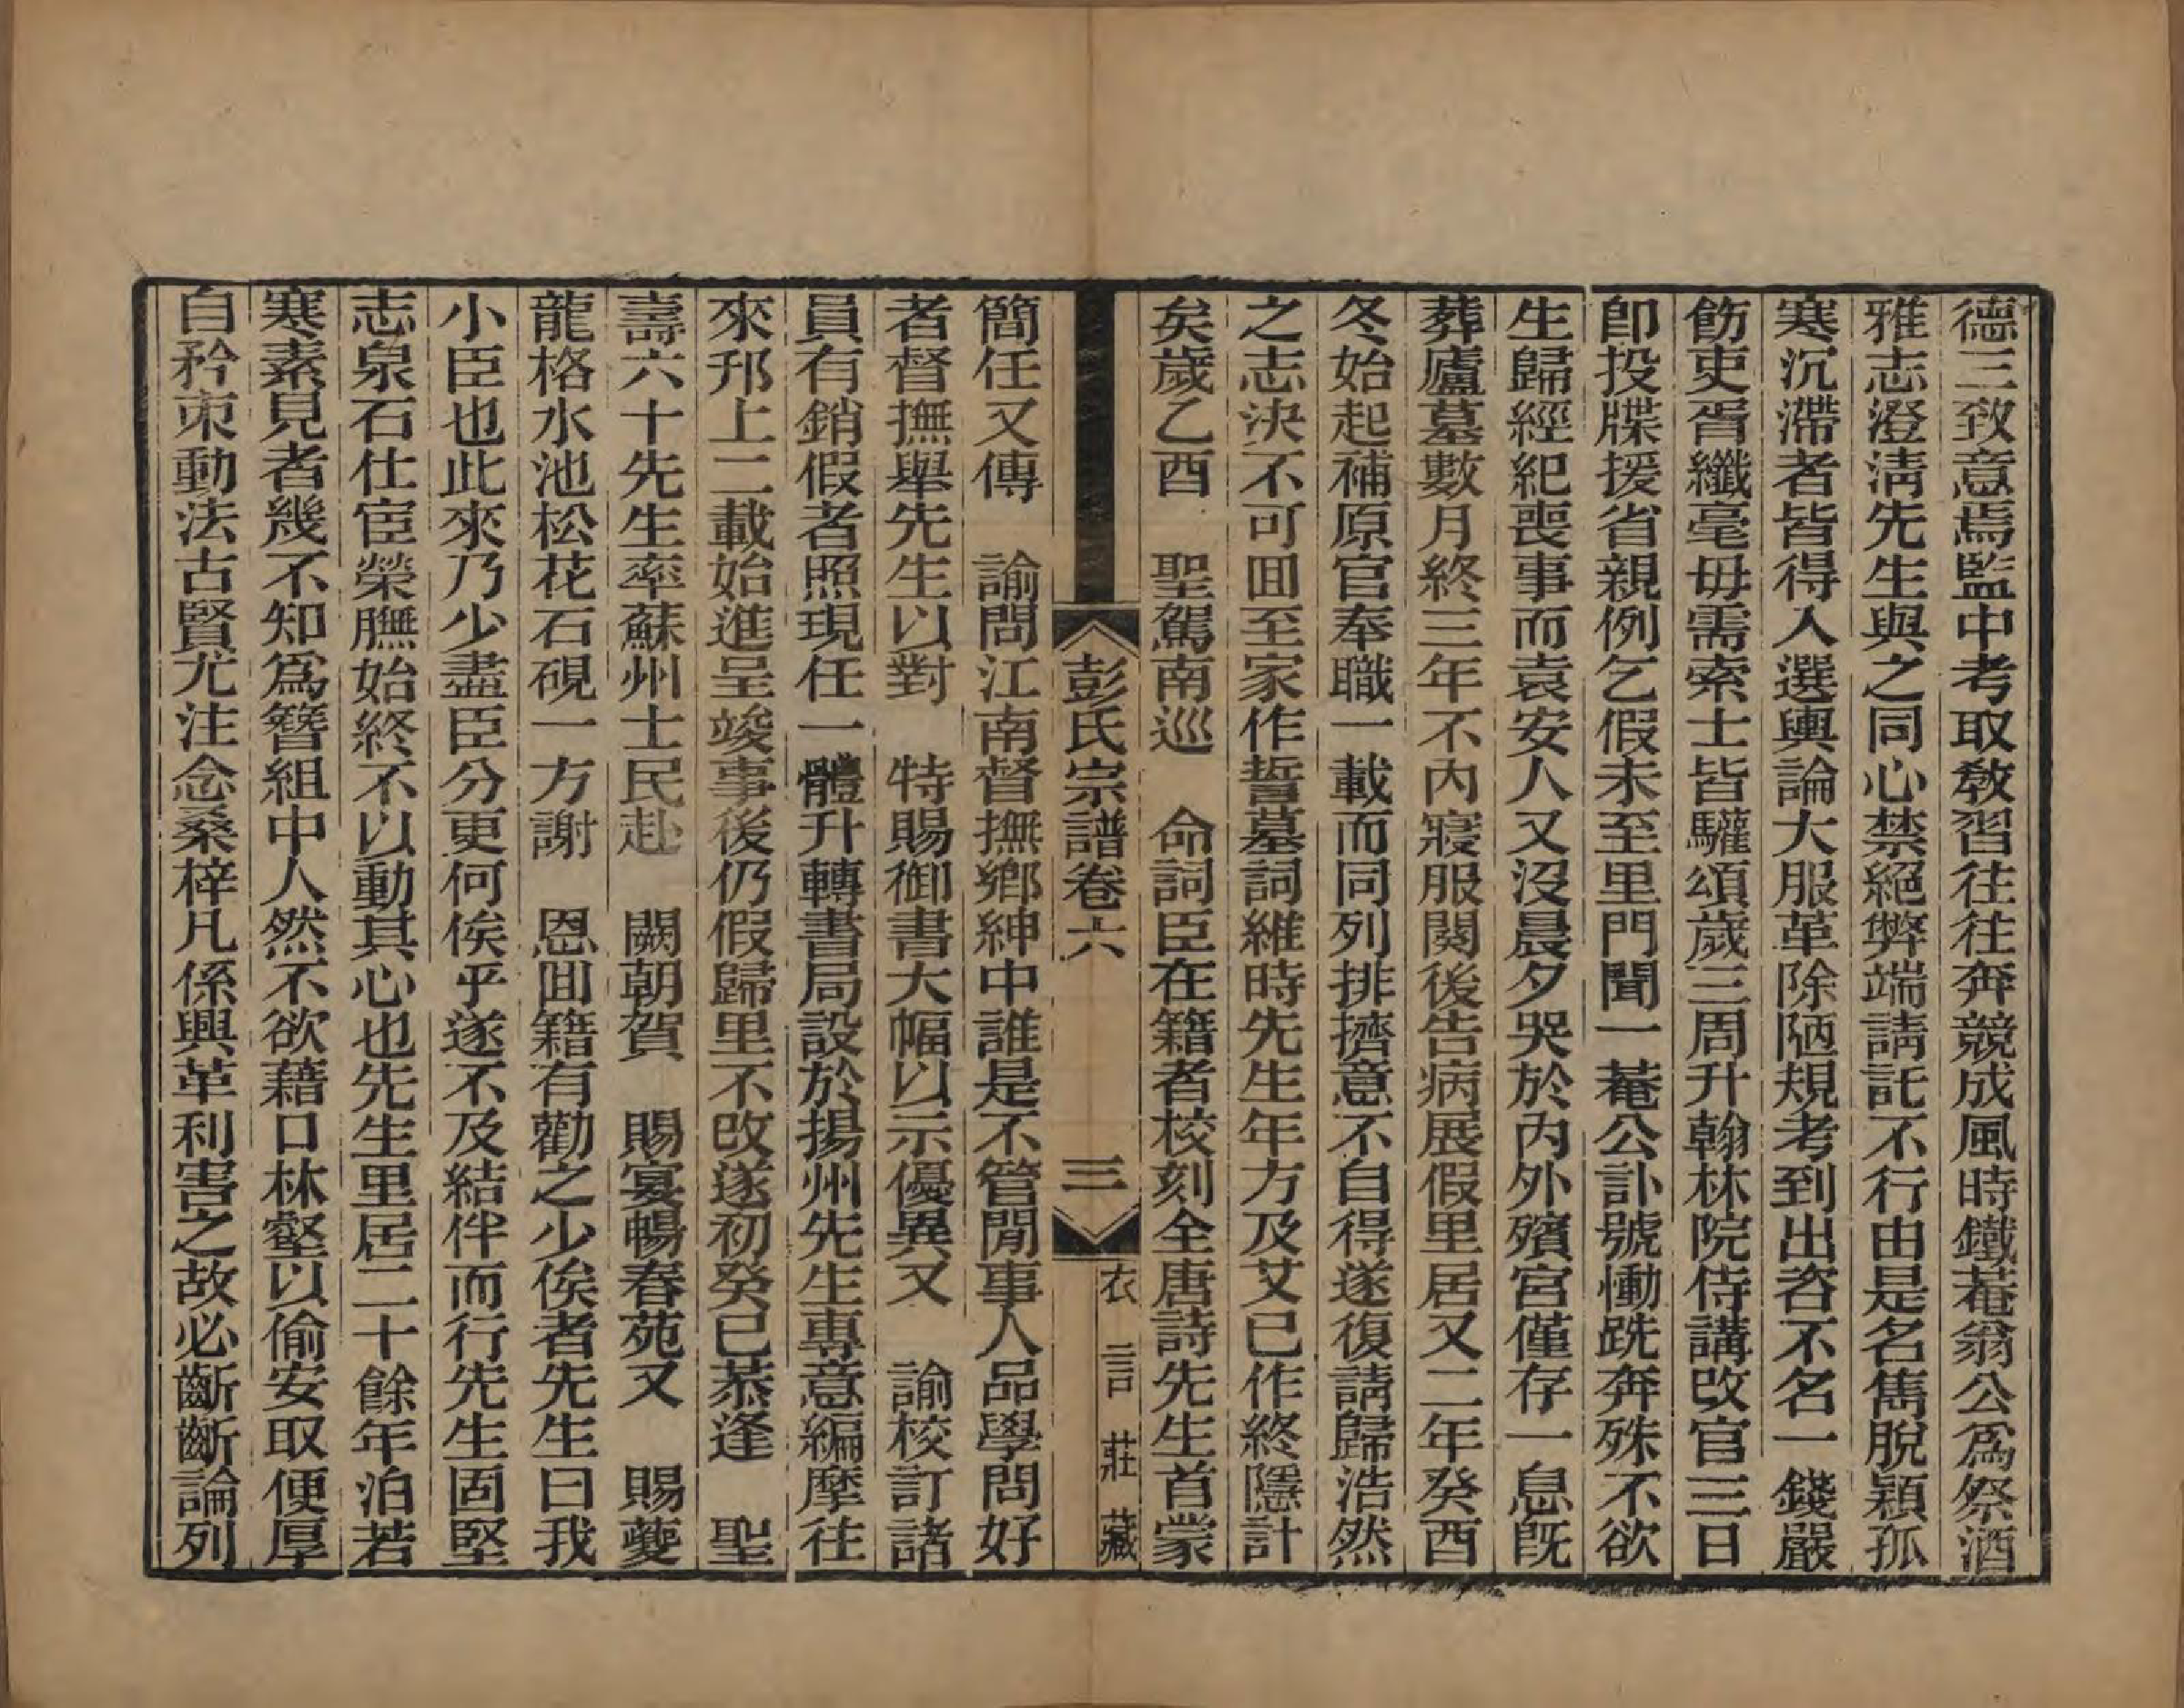 德三致意焉監中考取敎習往往奔競成風時鐵菴翁公爲祭酒
雅志澄淸先生與之同心禁絕弊端請託不行由是名雋脫穎孤
寒沉滯者皆得入選輿論大服革除陋規考到出咨不名一錢嚴
飭吏胥纖毫毋需索士皆驩頌歲三周升翰林院侍講改官三日
卽投牒援省親例乞假未至里門聞一菴公訃號慟跣奔殊不欲
生歸經紀喪事而袁安人又沒晨夕哭於內外殯宮僅存一息旣
葬廬墓數月終三年不內寢服闋後告病展假里居又二年癸酉
冬始起補原官奉職一載而同列排擠意不自得遂復請歸浩然
之志決不可囬至家作誓墓詞維時先生年方及艾已作終隱計
矣歲乙酉　聖駕南巡　命詞臣在籍者校刻全唐詩先生首蒙
彭氏宗譜卷六　三　衣言莊藏
簡任又傳　諭問江南督撫鄉紳中誰是不管閒事人品學問好
者督撫舉先生以對　特賜御書大幅以示優異又　諭校訂諸
員有銷假者照現任一體升轉書局設於揚州先生專意編摩往
來邗上二載始進呈竣事後仍假歸里不改遂初癸巳恭逢　聖
壽六十先生率蘇州士民赴　闕朝賀　賜宴暢春苑又　賜夔
龍格水池松花石硯一方謝　恩囬籍有勸之少俟者先生曰我
小臣也此來乃少盡臣分更何俟乎遂不及結伴而行先生固堅
志泉石仕宦榮膴始終不以動其心也先生里居二十餘年泊若
寒素見者幾不知爲簪組中人然不欲藉口林壑以偷安取便厚
自矜朿動法古賢尤注念桑梓凡係興革利害之故必齗齗論列